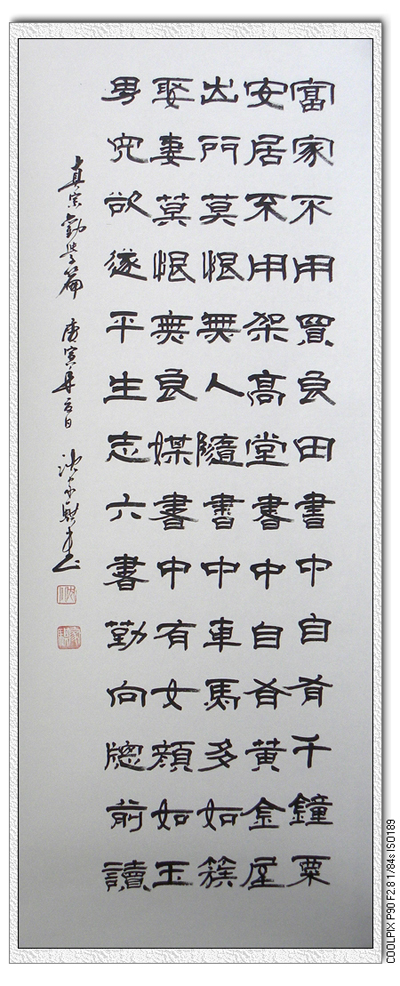 富家不用買良田書中自有千鐘粟
安居不用架高堂書中自有黃金屋
出門莫恨無人隨書中車馬多如簇
娶妻莫恨無良媒書中有女顏如玉
男兒欲遂平生志六書勤向牕前讀
真宗勸學篇 庚寅年
COOLPIX P90 F2.8 1/84s ISO189